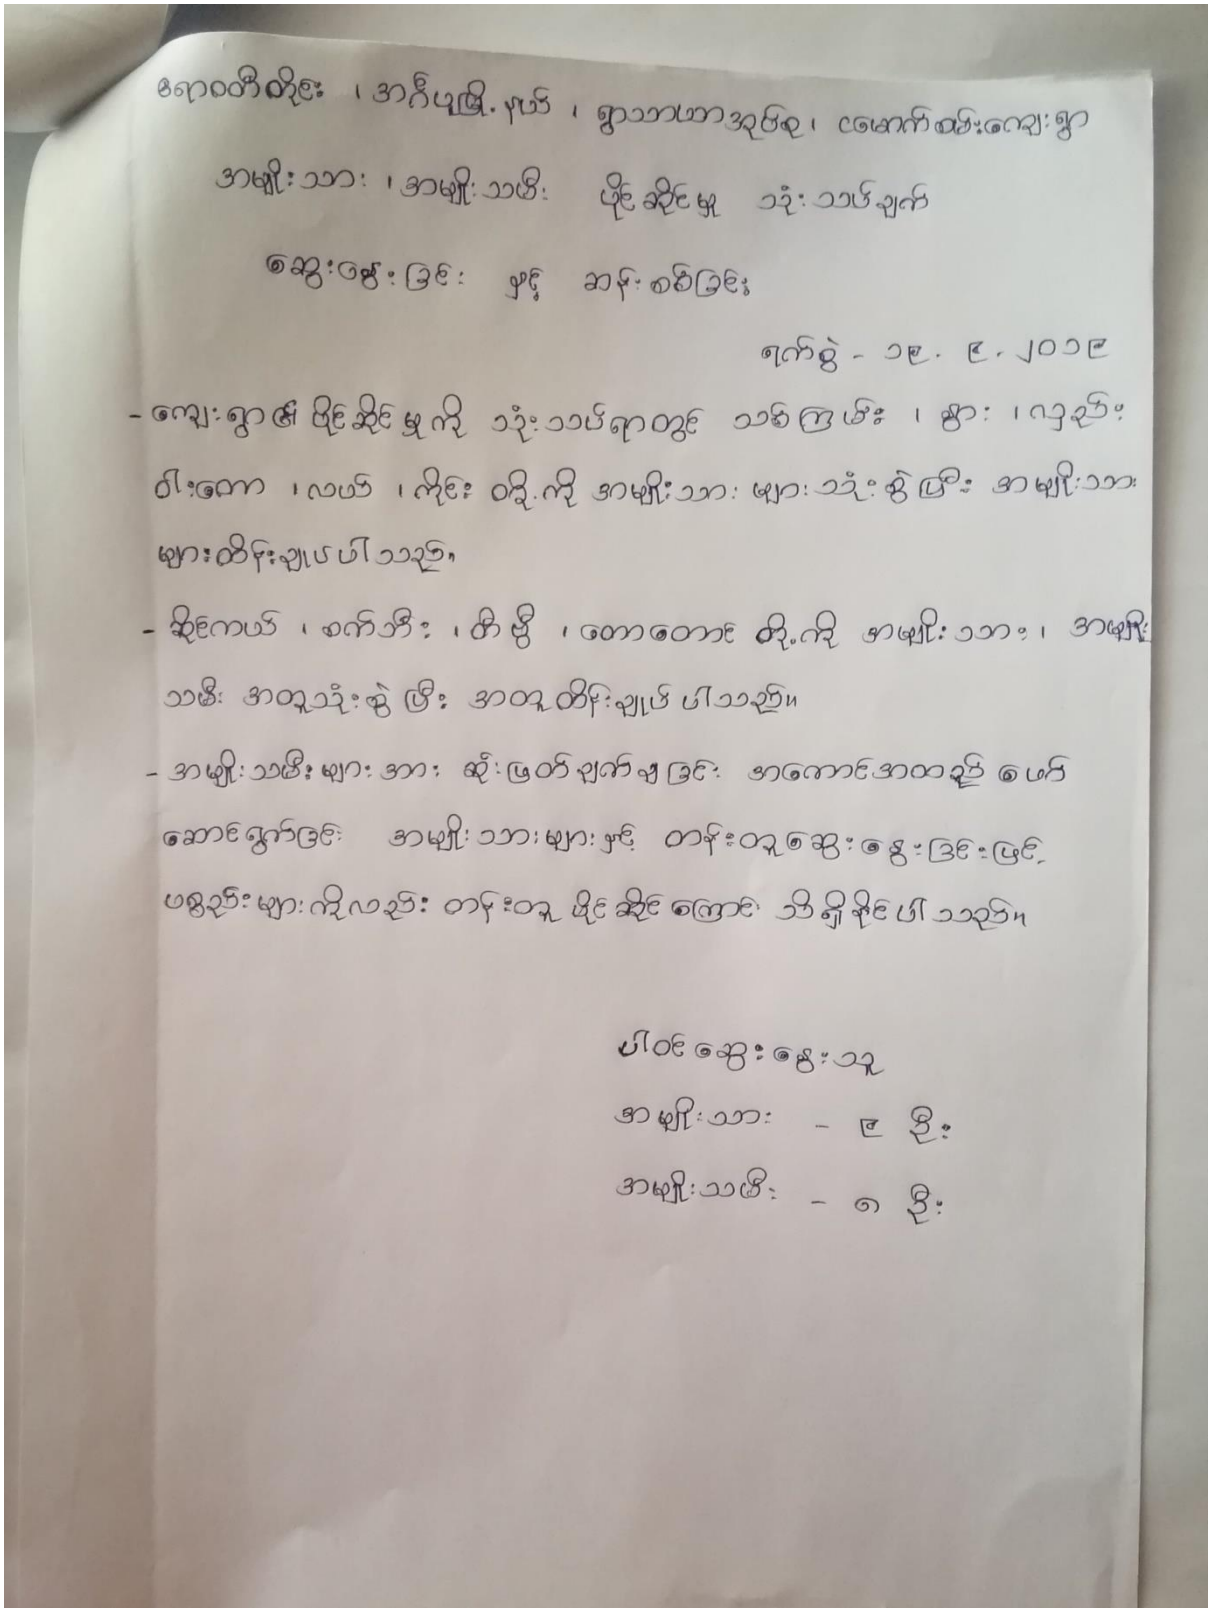 ဧရာဝတီတိုင်း ၊ အင်္ဂပူမြို့နယ် ၊ ရွာသာယာအုပ်စု ၊ ငမောက်စမ်းကျေးရွာ
အမျိုးသား ၊ အမျိုးသမီး ပိုင်ဆိုင်မှု သုံးသပ်ချက်
ဆွေးနွေးခြင်း နှင့် ဆန်းစစ်ခြင်း
ရက်စွဲ - ၁၉ . ၉ . ၂၀၁၉
- ကျေးရွာ၏ ပိုင်ဆိုင်မှုကို သုံးသပ်ရာတွင် သစ်ကြမ်း ၊ နွား ၊ လှည်း
ဝါးတော ၊ လယ် ၊ ကိုင်း တို့ကို အမျိုးသားများ သုံးစွဲပြီး အမျိုးသား
များထိန်းချုပ်ပါသည်။
- ဆိုင်ကယ် ၊ စက်ဘီး ၊ တီဗွီ ၊ တောတောင် တို့ကို အမျိုးသား ၊ အမျိုး
သမီး အတူသုံးစွဲပြီး အတူထိန်းချုပ်ပါသည်။
- အမျိုးသမီးများအား ဆုံးဖြတ်ချက်ချခြင်း အကောင်အထည်ဖော်
ဆောင်ရွက်ခြင်း အမျိုးသားများနှင့် တန်းတူဆွေးနွေးခြင်းဖြင့်
ပစ္စည်းများကိုလည်း တန်းတူ ပိုင်ဆိုင်ကြောင်း သိရှိနိုင်ပါသည်။
ပါဝင်ဆွေးနွေးသူ
အမျိုးသား - ၉ ဦး
အမျိုးသမီး - ၈ ဦး